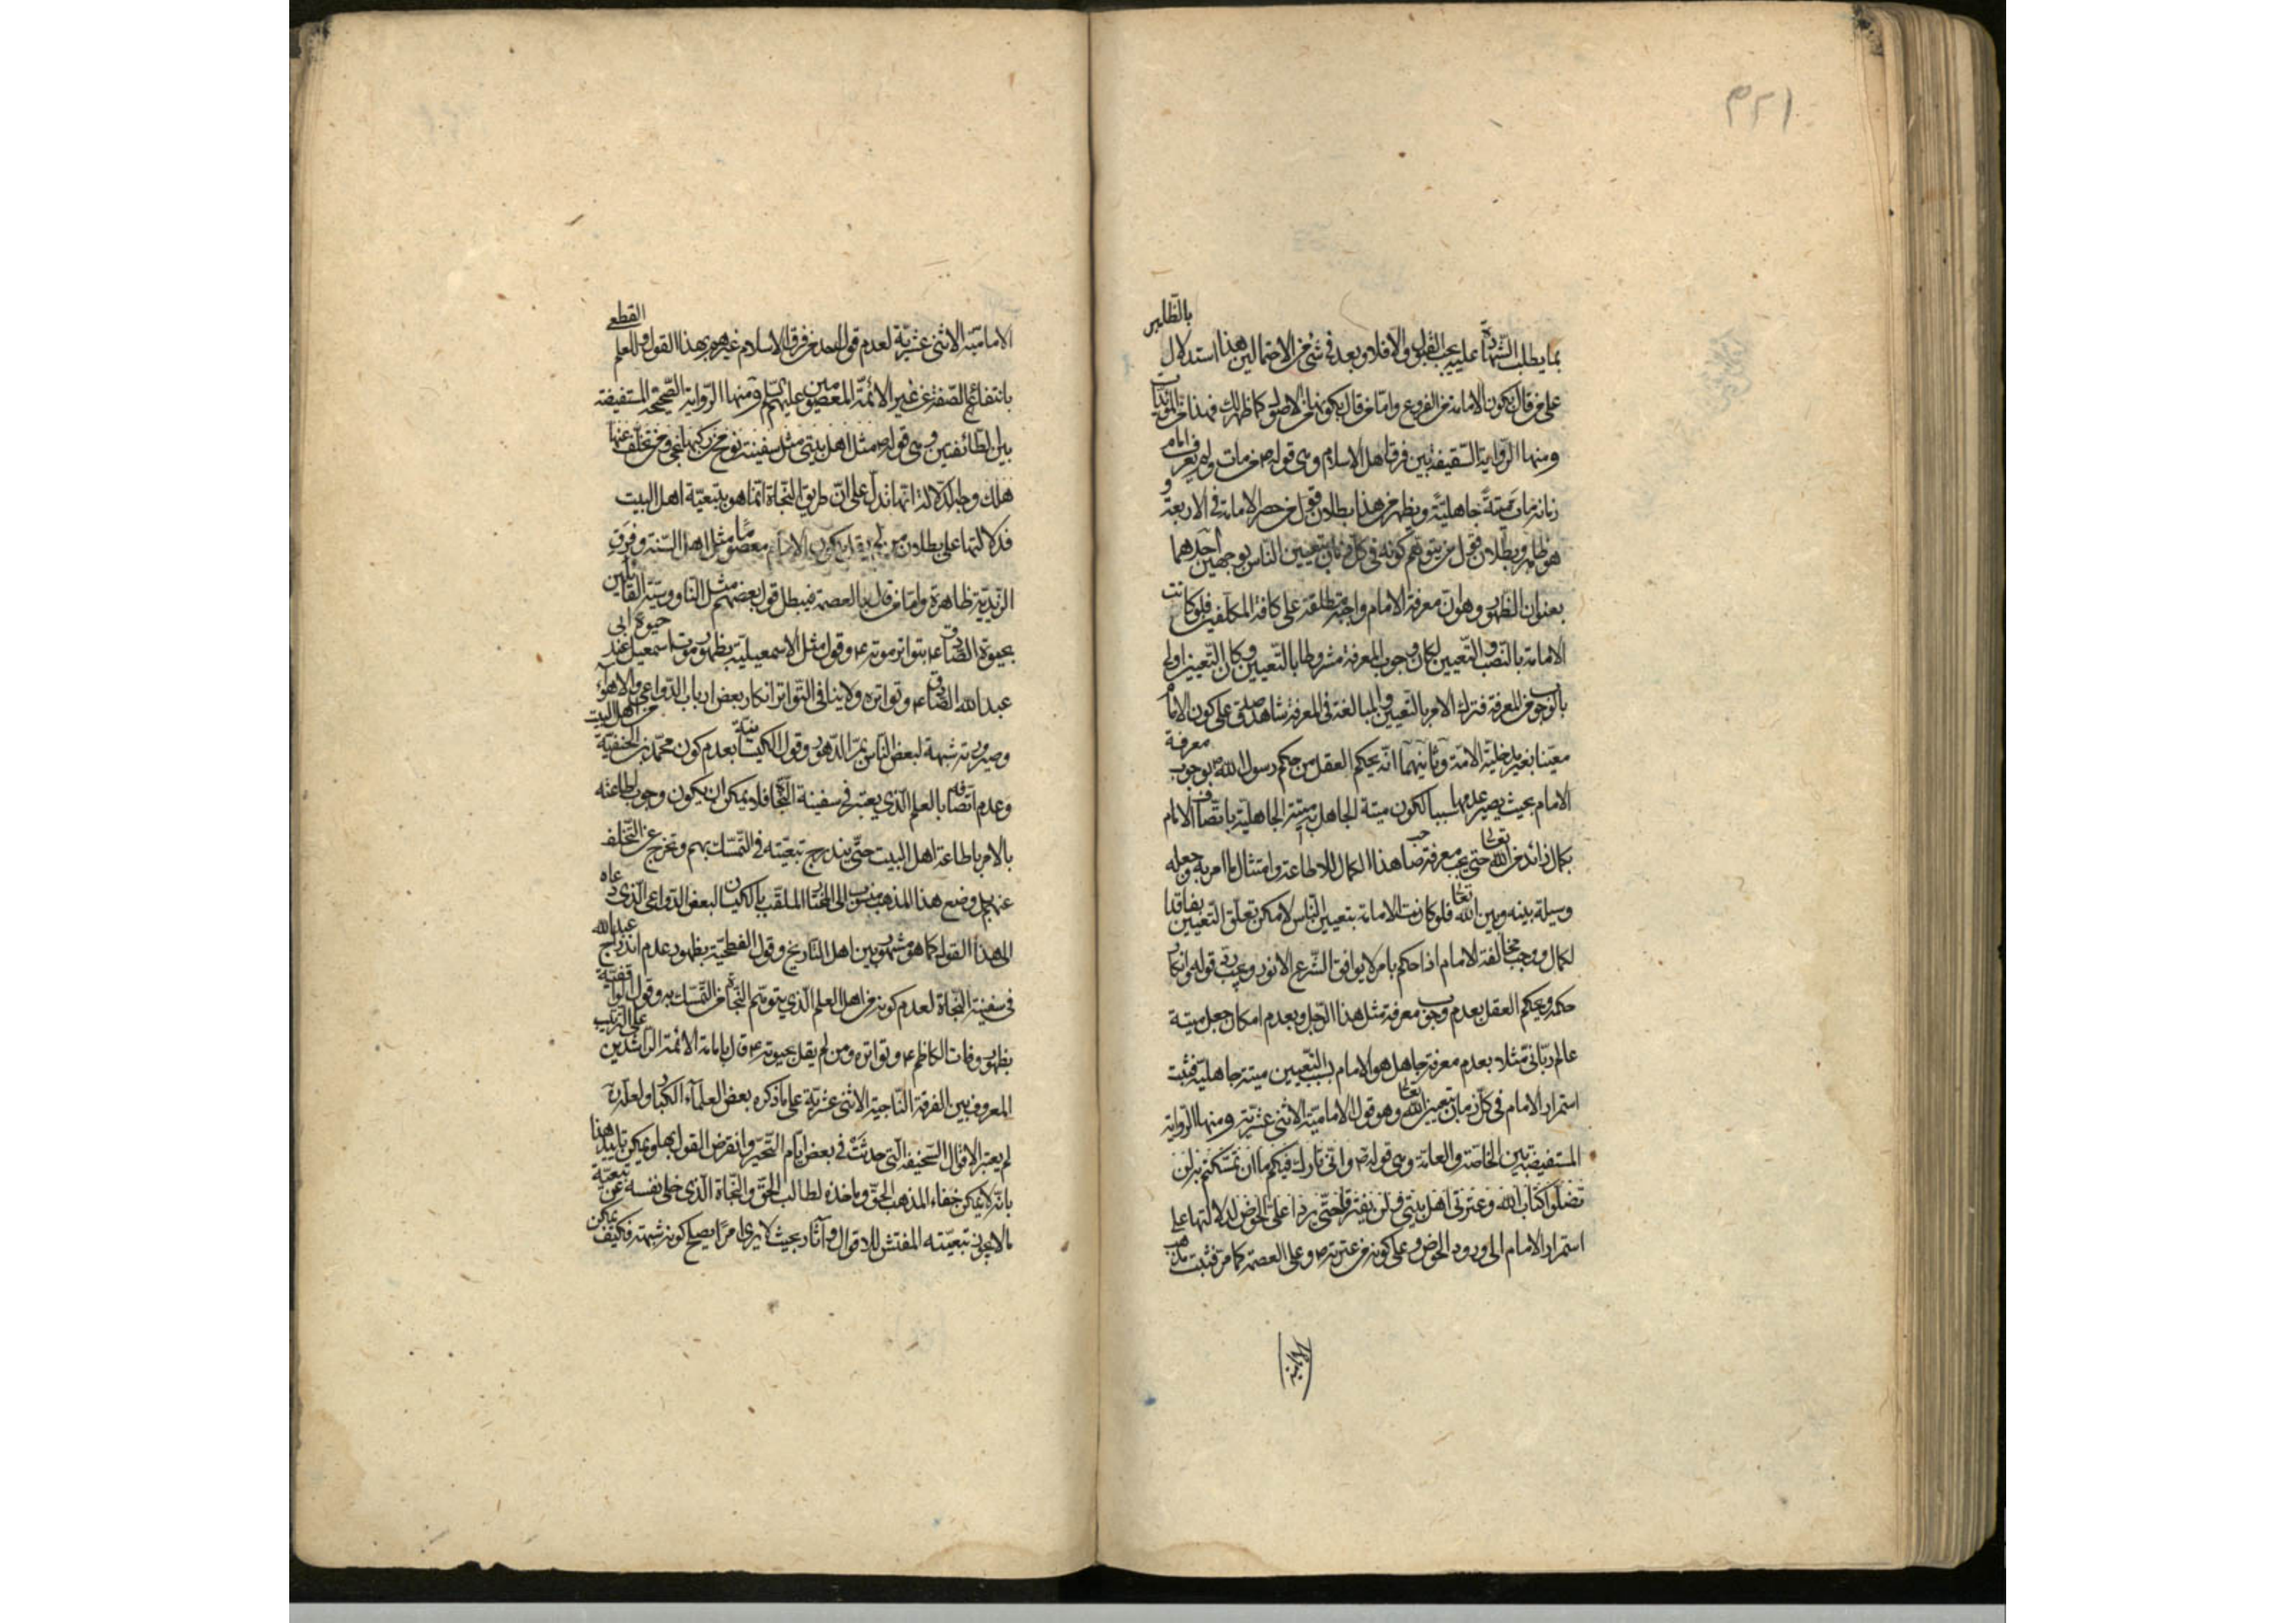 ٣٢١
بما يطلب الشهادة عليه يجب القبول والا فلا وبعد في شئ من الاحتمالين هذا استدلال بالنظائر
على من قال بكون الامامة من الفروع واما من قال بكونها من الاصول كما ظهر لك فهذا من المؤيدات
ومنها الرواية بين فرق اهل الاسلام وهي قوله ص من مات ولم يعرف امام
زمانه مات ميتة جاهلية ويظهر من هذا بطلان قول من حصر الامامة في الاربعة و
هو ظاهر وبطلان قول من يتوهم كونه في كل زمان بتعيين الناس بوجهين احدهما
بعنوان الظهور وهو ان معرفة الامام واجبة مطلقة على كافة المكلفين فلو كانت
الامامة بالنصب والتعيين لكان وجوب المعرفة مشروطا بالتعيين وكان التعيين اولى
بالوجوب من المعرفة فترك الامر بالتعيين والمبالغة في المعرفة شاهد صدق على كون الامام
معينا بغير مدخلية الامة وثانيهما انه يحكم العقل من حكم رسول الله ص بوجوب معرفة
الامام بحيث يصير عدمها سببا لكون ميتة الجاهل به ميتة الجاهلية باتصاف الامام
بكمال زائد من الله تعالى حتى يجب معرفة صاحب هذا الكمال للاطاعة وامتثال ما امر به وجعله
وسيلة بينه وبين الله تعالى فلو كانت الامامة بتعيين الناس لامكن تعلق التعيين بفاقد
لكمال ووجب مخالفة الامام اذا حكم بامر لا يوافق الشرع الانور وعيب رد قوله وانكار
حكمه ويحكم العقل بعدم وجوب معرفة مثل هذا الرجل وبعدم امكان جعل ميتة
عالم رباني مثلا بعدم معرفة جاهل هو الامام بسبب التعيين ميتة جاهلية فثبت
استمرار الامام في كل زمان بتعيين الله تعالى وهو قول الامامية الاثنى عشرية ومنها الرواية
المستفيضة بين الخاصة والعامة وهي قوله ص واني تارك فيكم ما ان تمسكتم به لن
تضلوا كتاب الله وعترتي اهل بيتي ولن يفترقا حتى يردا على الحوض لدلالتها على
استمرار الامام الى ورود الحوض وعلى كونه من عترته ص وعلى العصمة كما مر فثبت مذهب
الامامية الاثنى عشرية لعدم قول احد من فرق الاسلام غيرهم بهذا القول وللعلم القطعي
بانتفاء الصفة عن غير الائمة المعصومين عليهم السلام ومنها الرواية الصحيحة المستفيضة
بين الطائفتين وهي قوله ص مثل اهل بيتي مثل سفينة نوح من ركبها نجى ومن تخلف عنها
هلك وجه الدلالة انها تدل على ان طريق النجاة انما هو بتبعية اهل البيت
فدلالتها على بطلان من لم يقل بكون الامام معصوما مثل اهل السنة وفرق
الزيدية ظاهرة واما من قال بالعصمة فيبطل قول بعضهم مثل الناووسية القائلين
بحيوة الصادق ع بتواتر موته ع وقول مثل الاسمعيلية بظهور موت اسمعيل عند حيوة ابي
عبد الله الصادق ع وتواتره ولا ينافي التواتر انكار بعض ارباب الدواعي والاهواء
وصيرورته شبهة لبعض الناس بمر الدهور وقول الكيسانية بعدم كون محمد بن الحنفية من اهل البيت
وعدم اتصافه بالعلم الذي يعتبر في سفينة النجاة فلا يمكن ان يكون وجوب اطاعته
بالامر باطاعة اهل البيت حتى يندرج تبعيته في التمسك بهم وتخرج عن التخلف
عنهم بل وضع هذا المذهب منسوب الى المختار الملقب بالكيسان لبعض الدواعي الذي دعاه
الى هذا القول كما هو مشهور بين اهل التاريخ وقول الفطحية بظهور عدم اندراج عبد الله
في سفينة النجاة لعدم كونه من اهل العلم الذي يتوهم النجاة من التمسك به وقول الواقفية
بظهور وفات الكاظم ع وتواتره ومن لم يقل بحيوته ع قال بامامة الائمة الراشدين على الترتيب
المعروف بين الفرقة الناجية الاثنى عشرية على ما ذكره بعض العلماء الكبار ولعله
لم يعتبر الاقوال السخيفة التي حدثت في بعض ايام التحير وانقرض القول بها ويمكن تاييد هذا
بانه لا يمكن خفاء المذهب الحق وماخذه لطالب الحق والنجاة الذي خلى نفسه عن تبعية
ما لا يجوز تبعيته المفتش للاقوال وآثار بحيث لا يرى امرا يصلح كونه شبهة فكيف يمكن